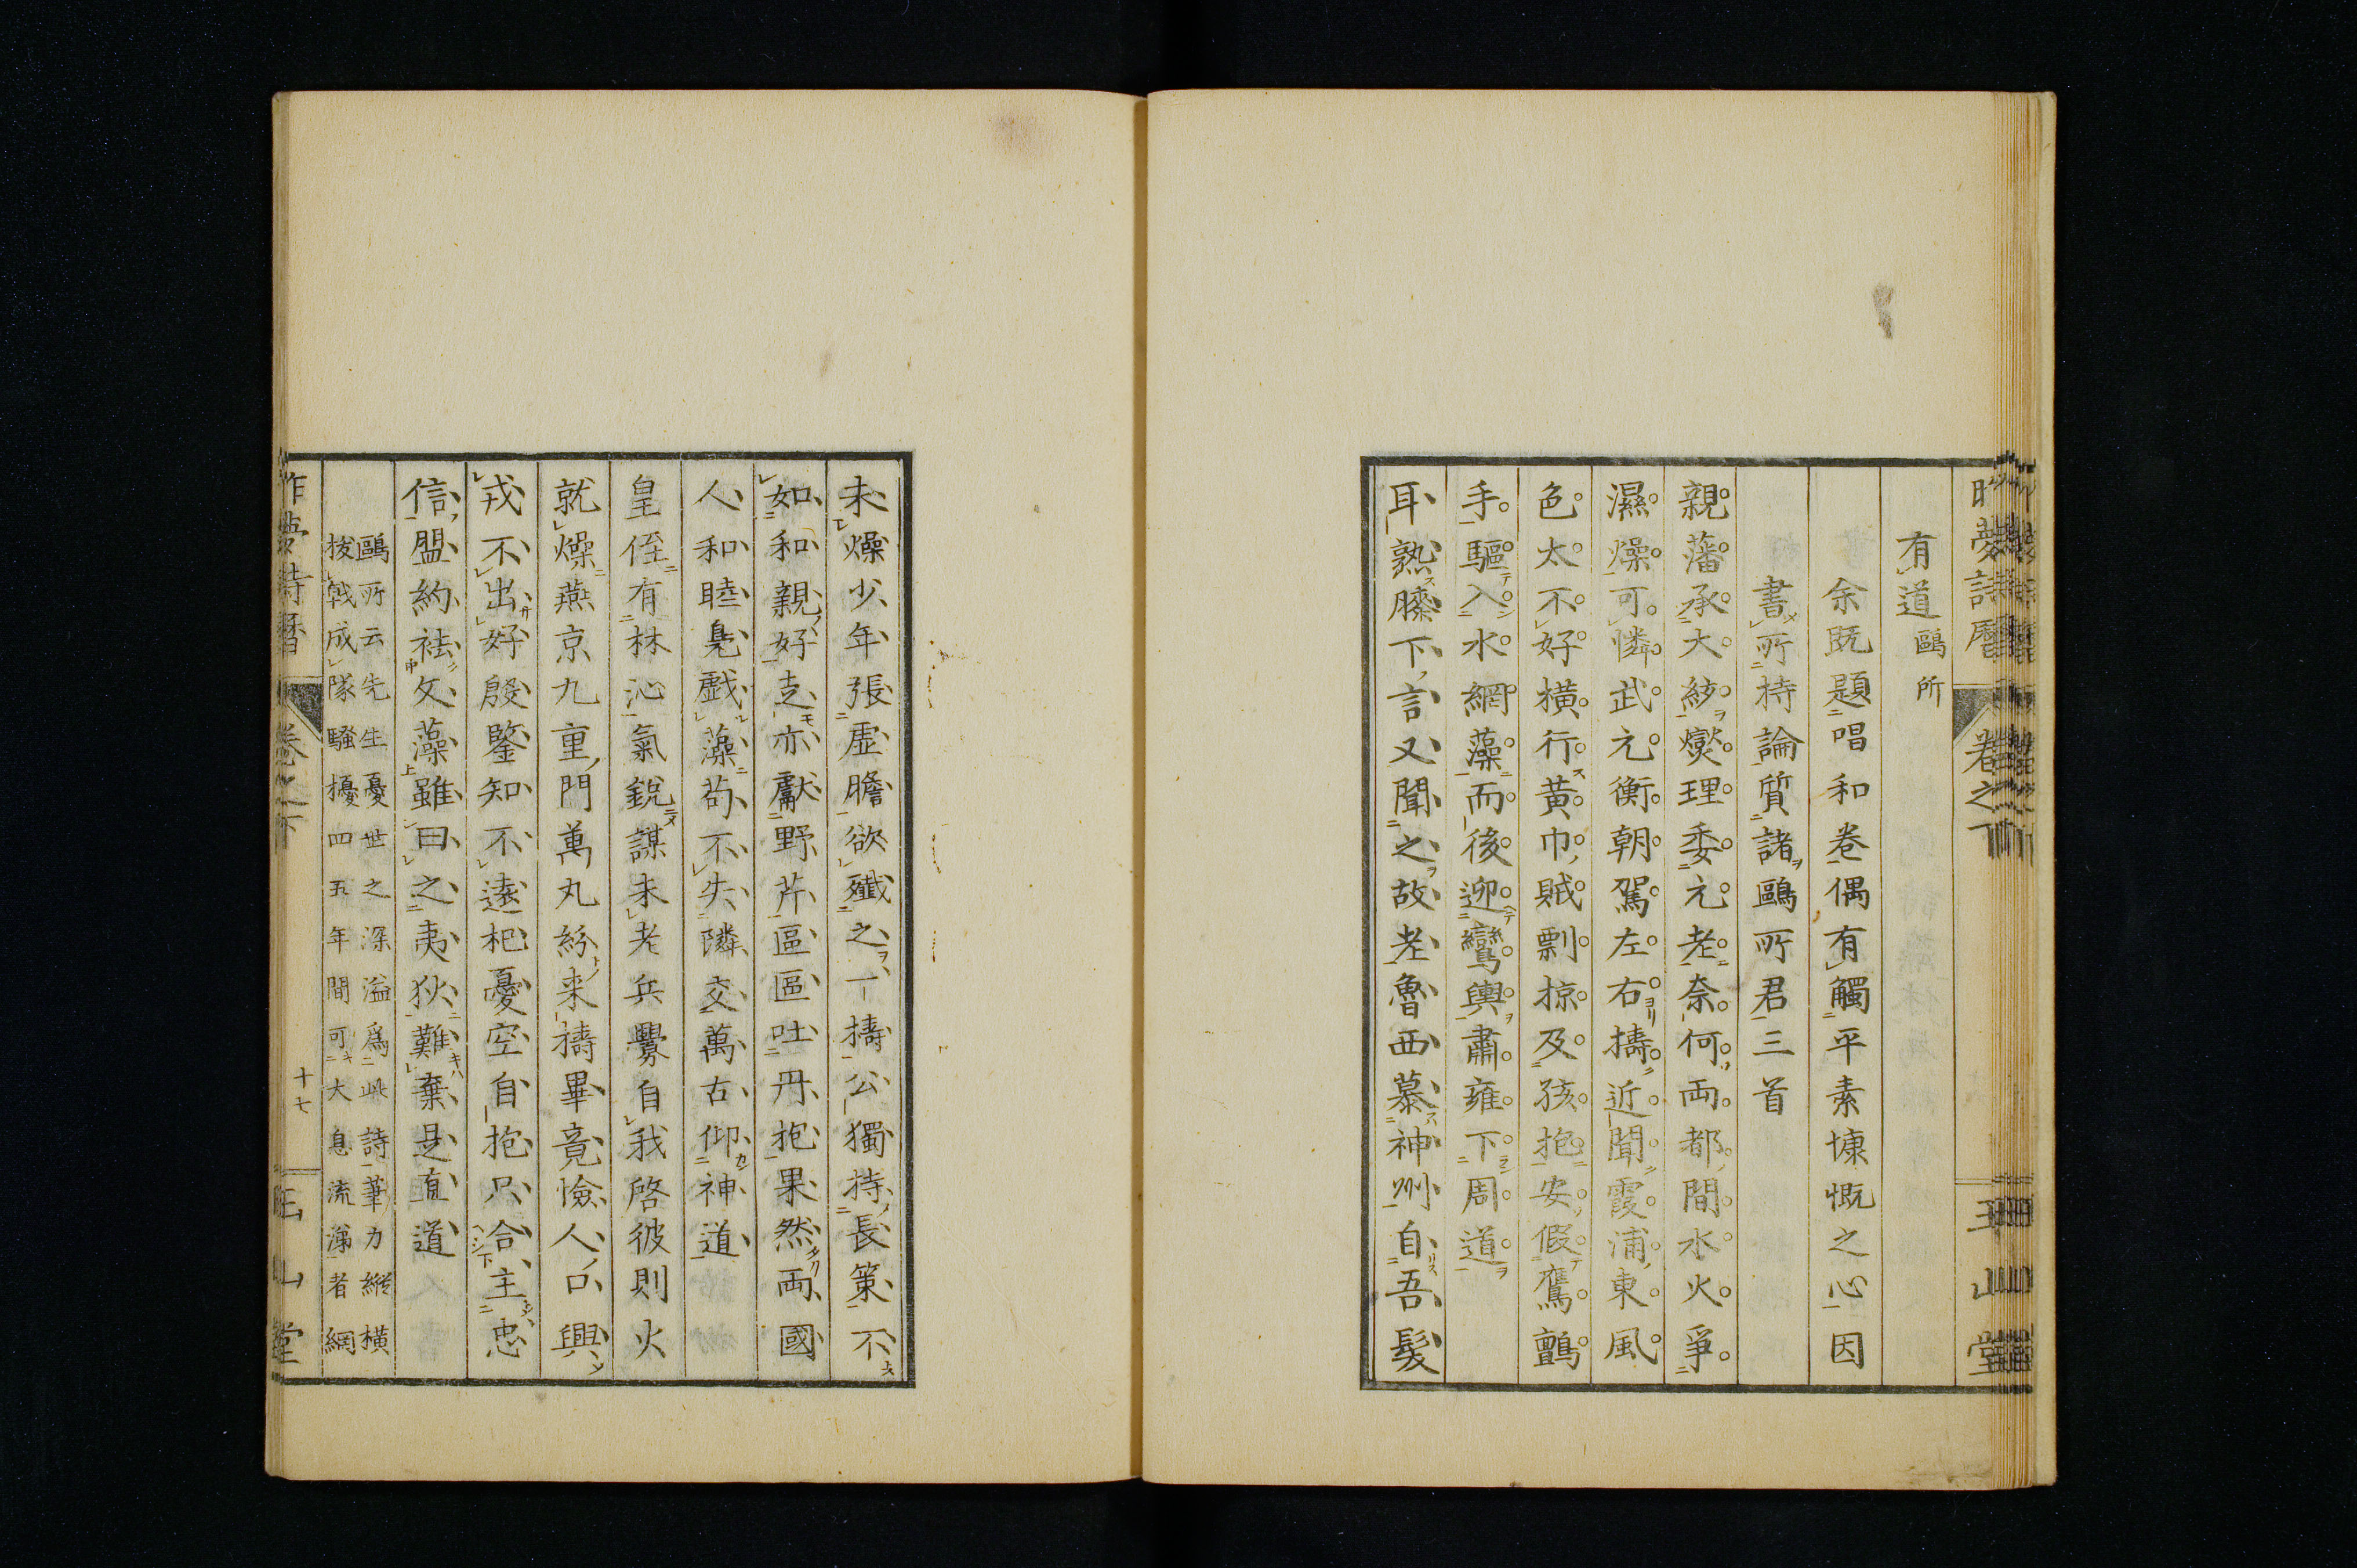 昨夢詩曆 卷之下 玉山堂
有道 鷗所
余既題唱和卷偶有觸平素慷慨之心因
書所持論質諸鷗所君三首
親藩承大統燮理委元老奈何両都間水火爭
濕燥可憐武元衡朝駕左右擣近聞霞浦東風
色太不好橫行黃巾賊剽掠及孩抱安假鷹鸇
手驅入水網藻而後迎鸞輿肅雍下周道
耳熟膝下言又聞之故老魯西慕神州自吾髮
未燥少年張虛膽欲殲之一擣公獨持長策不
如和親好走亦獻野芹區區吐丹抱果然両國
人和睦鳧戲藻苟不失隣交萬古仰神道
皇侄有林沁氣銳謀未老兵釁自我啓彼則火
就燥燕京九重門萬丸紛来擣畢竟憸人口興
戎不出好殷鑒知不遠杞憂空自抱只合主忠
信盟約祛文藻雖曰之夷狄難棄是直道
鷗所云先生憂世之深溢爲此詩筆力縱橫
梭戟成隊騷擾四五年間可大息流涕者網
昨夢詩曆 卷之下 十七 玉山堂